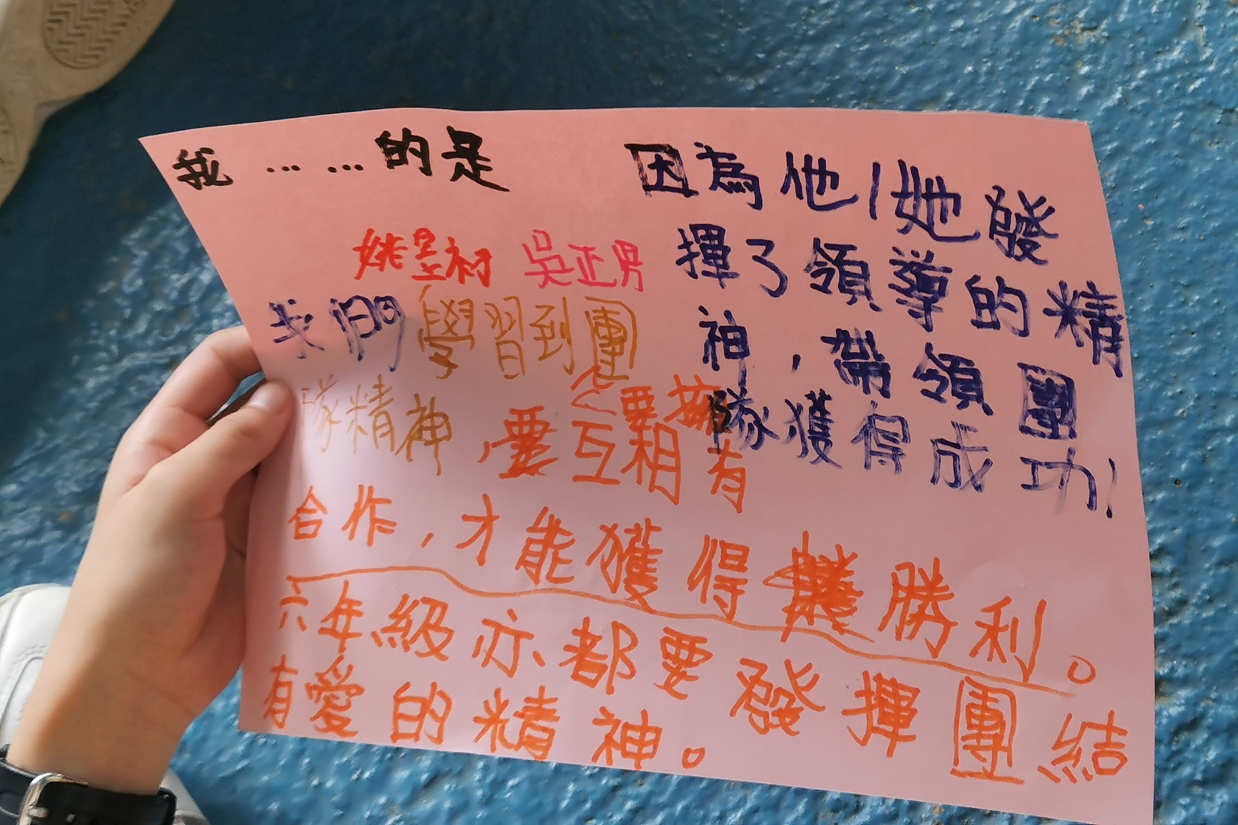 我 ... ... 的是
吳正男
我們學習到團
隊精神，要互相
要擁有
合作，才能獲得勝利。
六年級亦都要發揮團結
有愛的精神。
因為他/她發
揮了領導的精
神，帶領團
隊獲得成功!